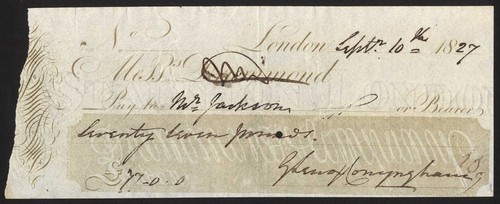 No. London Septr. 10th 1827
Messrs. Drummond
Pay to Mr. Jackson or Bearer
Seventy Seven pounds.
£77-0-0 Conyngham